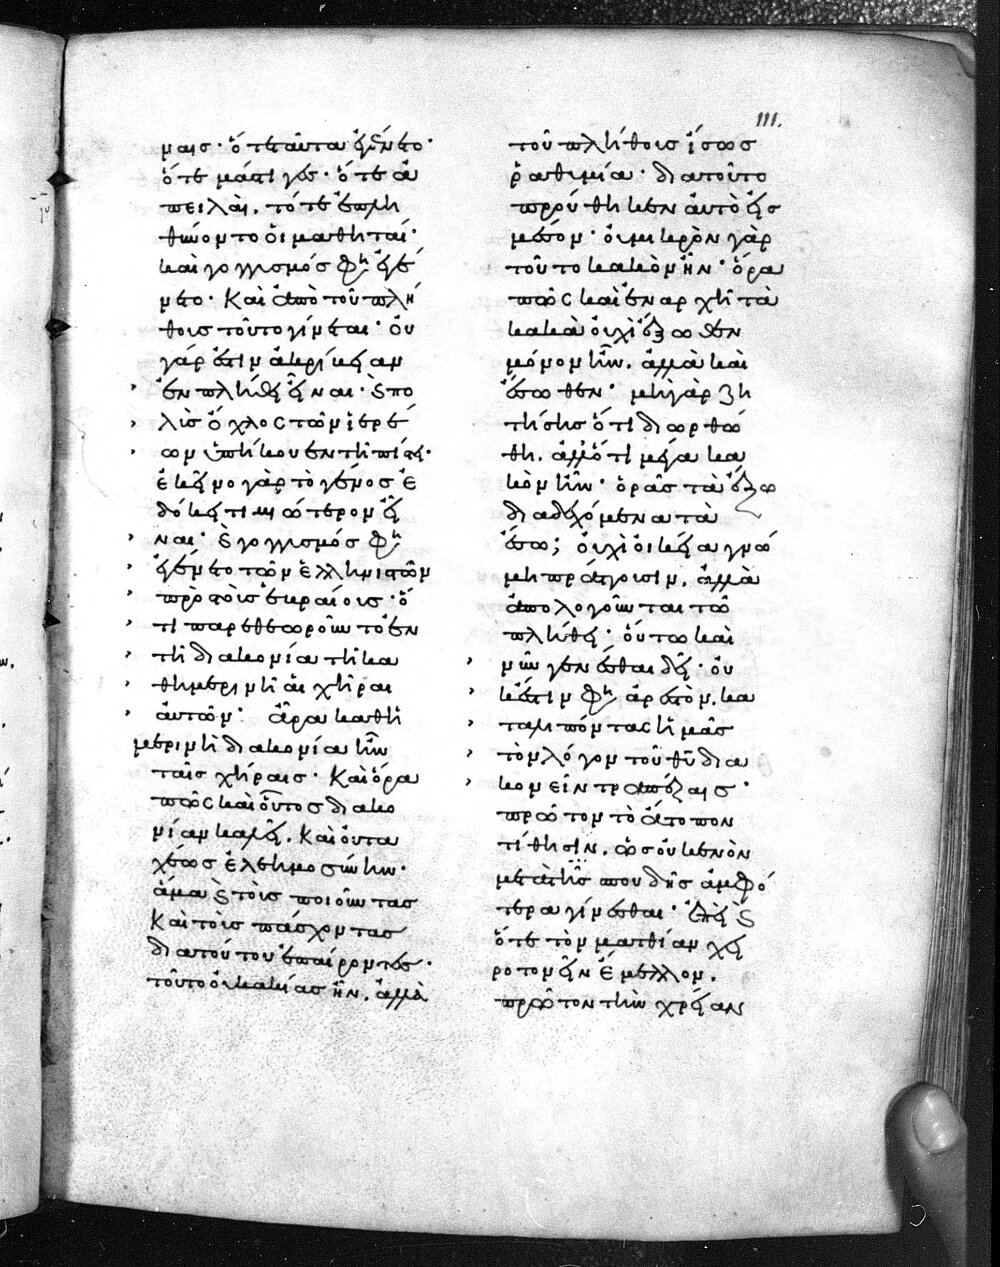 111.
μαις· ὅτε ταῦτα ἐγένετο·
ὅτε μάστιγες· ὅτε ἀ
πειλαὶ. τότε ἐπλη
θύνοντο οἱ μαθηταί·
καὶ γογγυσμός φη ἐγέ
νετο. Καὶ ἀπὸ τοῦ πλή
θους τοῦτο γίνεται· οὐ
γάρ ἐστιν ἀκριβείαν
ἐν πλήθει εἶναι· καὶ πο
λὺς ὄχλος τῶν ἱερέ
ων ὑπήκουεν τῆ πίστει·
ἐκεῖνο γὰρ τὸ γένος ἐ
δόκει τιμιώτερον εἶ
ναι· καὶ γογγυσμός φη
ἐγένετο τῶν ἑλληνιστῶν
πρὸς τοὺς ἑβραίους· ὅ
τι παρεθεωροῦντο ἐν
τῆ διακονία τῆ κα
θημερινῆ αἱ χῆραι
αὐτῶν· ἄρα καθη
μερινὴ διακονία ἦν
ταῖς χήραις· Καὶ ὅρα
πῶς καὶ οὗτος διακο
νίαν καλεῖ. Καὶ οὐ τα
χέως ἐλεημοσύνην·
ἅμα καὶ τοὺς ποιοῦντας
Καὶ τοὺς πάσχοντας
διὰ τούτου ἐπαίροντες·
τοῦτο οὐ κακίας ἦν. ἀλλὰ
τοῦ πλήθους ἴσως
ῥαθυμία· διὰ τοῦτο
προύθηκεν αὐτὸ εἰς
μέσον· οὐ μικρὸν γὰρ
τοῦτο κακὸν ἦν· ὅρα
πῶς καὶ ἐν ἀρχῆ τὰ
κακὰ οὐχὶ ἔξωθεν
μόνον ἦν. ἀλλὰ καὶ
ἔσωθεν· μὴ γὰρ ζη
τήσης ὅτι διωρθώ
θη. ἀλλ᾽ ὅτι μέγα κα
κὸν ἦν· ὁρᾶς τὰ ἔξω
διαδεχόμενα τὰ
ἔσω; οὐχὶ οἰκεία γνώ
μη πράττουσιν. ἀλλὰ
ἀπολογοῦνται τῶ
πλήθει· οὕτω καὶ
νῦν γενέσθαι δεῖ· οὐ
κ ἔστιν φη ἀρεστὸν. κα
ταλιπόντας ἡμᾶς
τὸν λόγον τοῦ θῦ δια
κονεῖν τραπέζαις·
πρῶτον τὸ ἄτοπον
τίθησιν. ὡς οὐκ ἐνὸν
μετὰ τῆς σπουδῆς ἀμφό
τερα γίνεσθαι· ἐπεὶ καὶ
ὅτε τὸν ματθίαν χει
ροτονεῖν ἔμελλον.
πρῶτον τὴν χρείαν